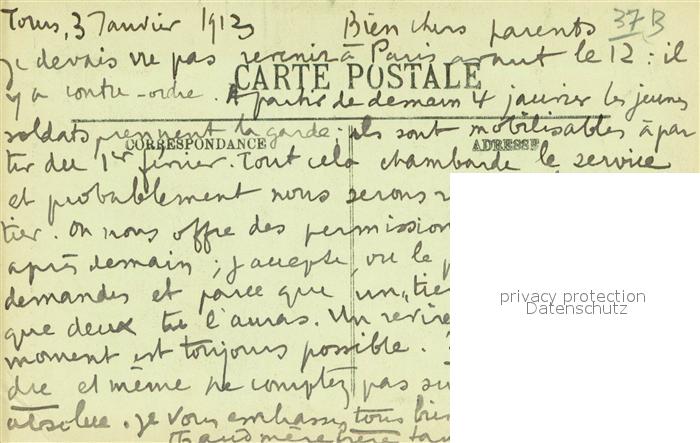 Tours, 3 Janvier 1913 Bien chers parents 37B
je devais ne pas revenir à Paris avant le 12 : il
CARTE POSTALE
y a contre-ordre. A partir de demain 4 janvier les jeunes
soldats prennent la garde : ils sont mobilisables à par
CORRESPONDANCE ADRESSE
tir du 1er février. Tout cela chambarde le service
et probablement nous serons
tier. On nous offre des permission
après demain ; j'accepte, vu le
demandes et parce que un "tie
que deux tu l'auras. Un revire
moment est toujours possible.
dre et même ne comptez pas
absolue. je vous embrasse tous bie
privacy protection
Datenschutz